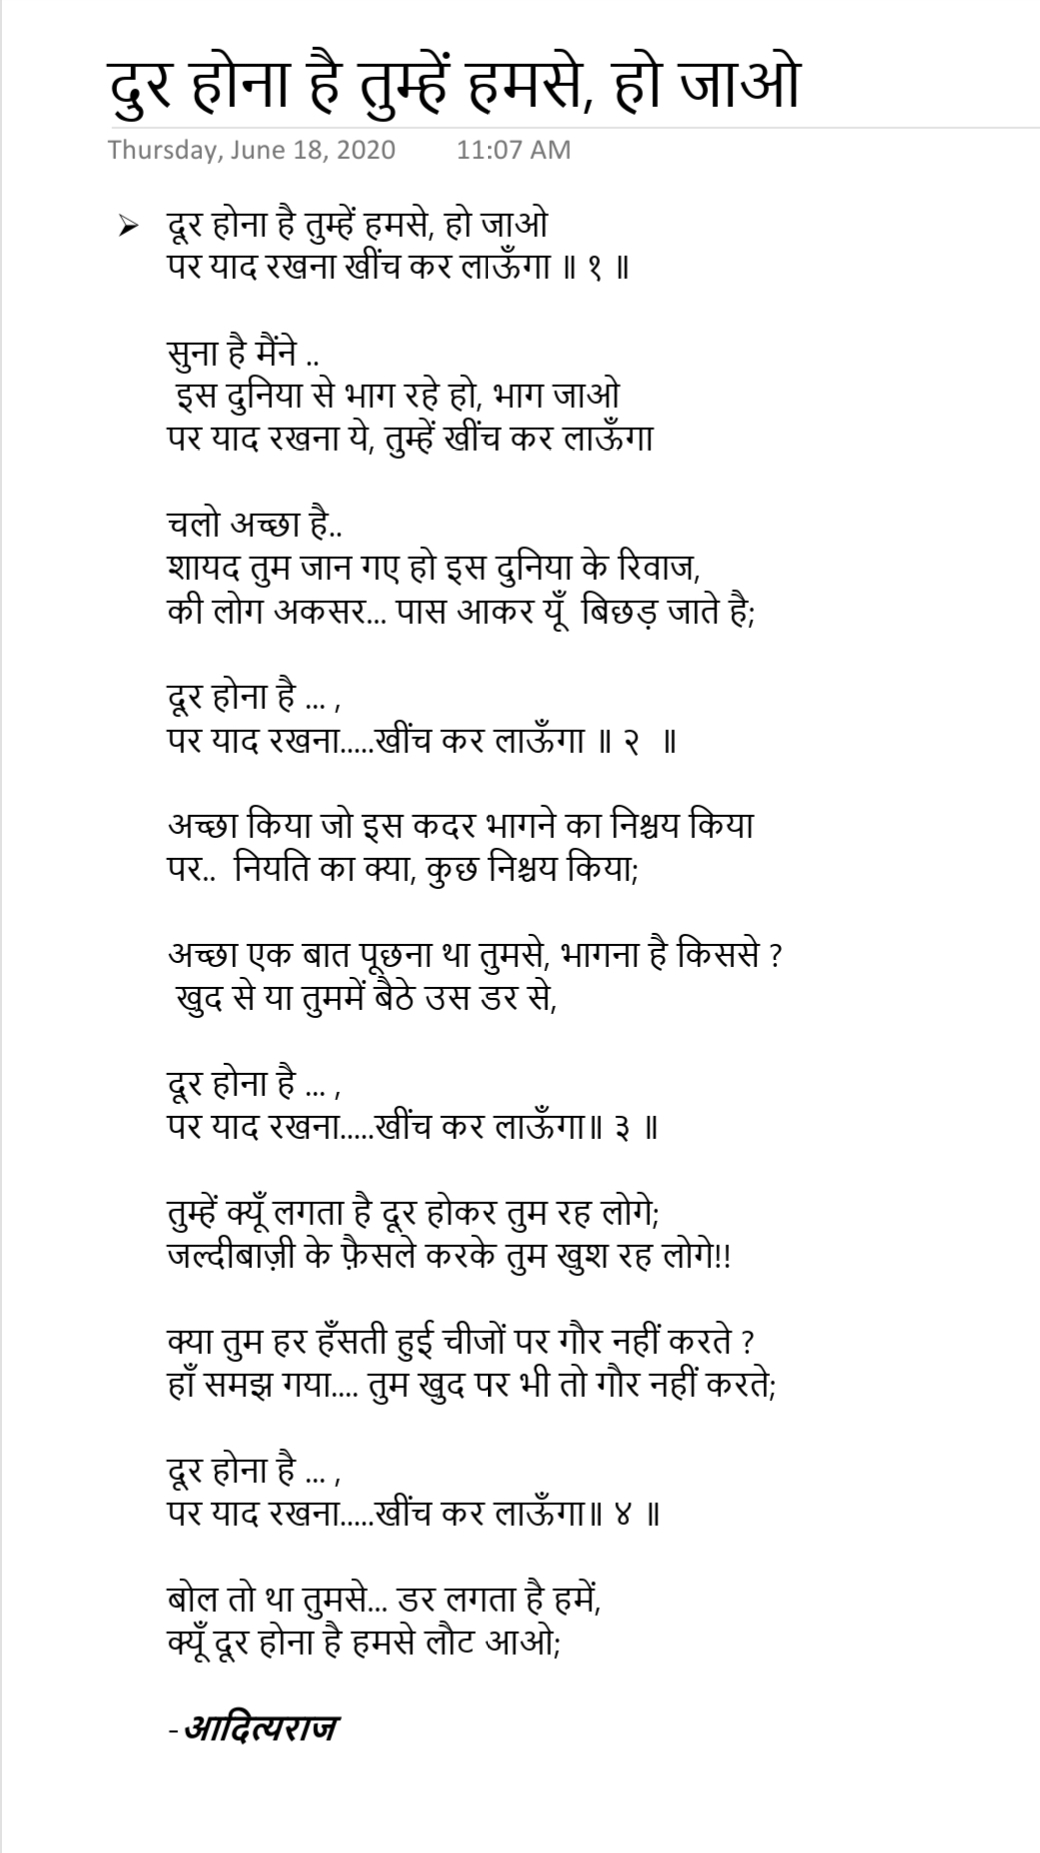 दुर होना है तुम्हें हमसे, हो जाओ
Thursday, June 18, 2020 11:07 AM
➢ दूर होना है तुम्हें हमसे, हो जाओ
पर याद रखना खींच कर लाऊँगा ॥ १ ॥
सुना है मैंने ..
इस दुनिया से भाग रहे हो, भाग जाओ
पर याद रखना ये, तुम्हें खींच कर लाऊँगा
चलो अच्छा है..
शायद तुम जान गए हो इस दुनिया के रिवाज,
की लोग अकसर... पास आकर यूँ बिछड़ जाते है;
दूर होना है ... ,
पर याद रखना.....खींच कर लाऊँगा ॥ २ ॥
अच्छा किया जो इस कदर भागने का निश्चय किया
पर.. नियति का क्या, कुछ निश्चय किया;
अच्छा एक बात पूछना था तुमसे, भागना है किससे ?
खुद से या तुममें बैठे उस डर से,
दूर होना है ... ,
पर याद रखना.....खींच कर लाऊँगा॥ ३ ॥
तुम्हें क्यूँ लगता है दूर होकर तुम रह लोगे;
जल्दीबाज़ी के फ़ैसले करके तुम खुश रह लोगे!!
क्या तुम हर हँसती हुई चीजों पर गौर नहीं करते ?
हाँ समझ गया.... तुम खुद पर भी तो गौर नहीं करते;
दूर होना है ... ,
पर याद रखना.....खींच कर लाऊँगा॥ ४ ॥
बोल तो था तुमसे... डर लगता है हमें,
क्यूँ दूर होना है हमसे लौट आओ;
- आदित्यराज